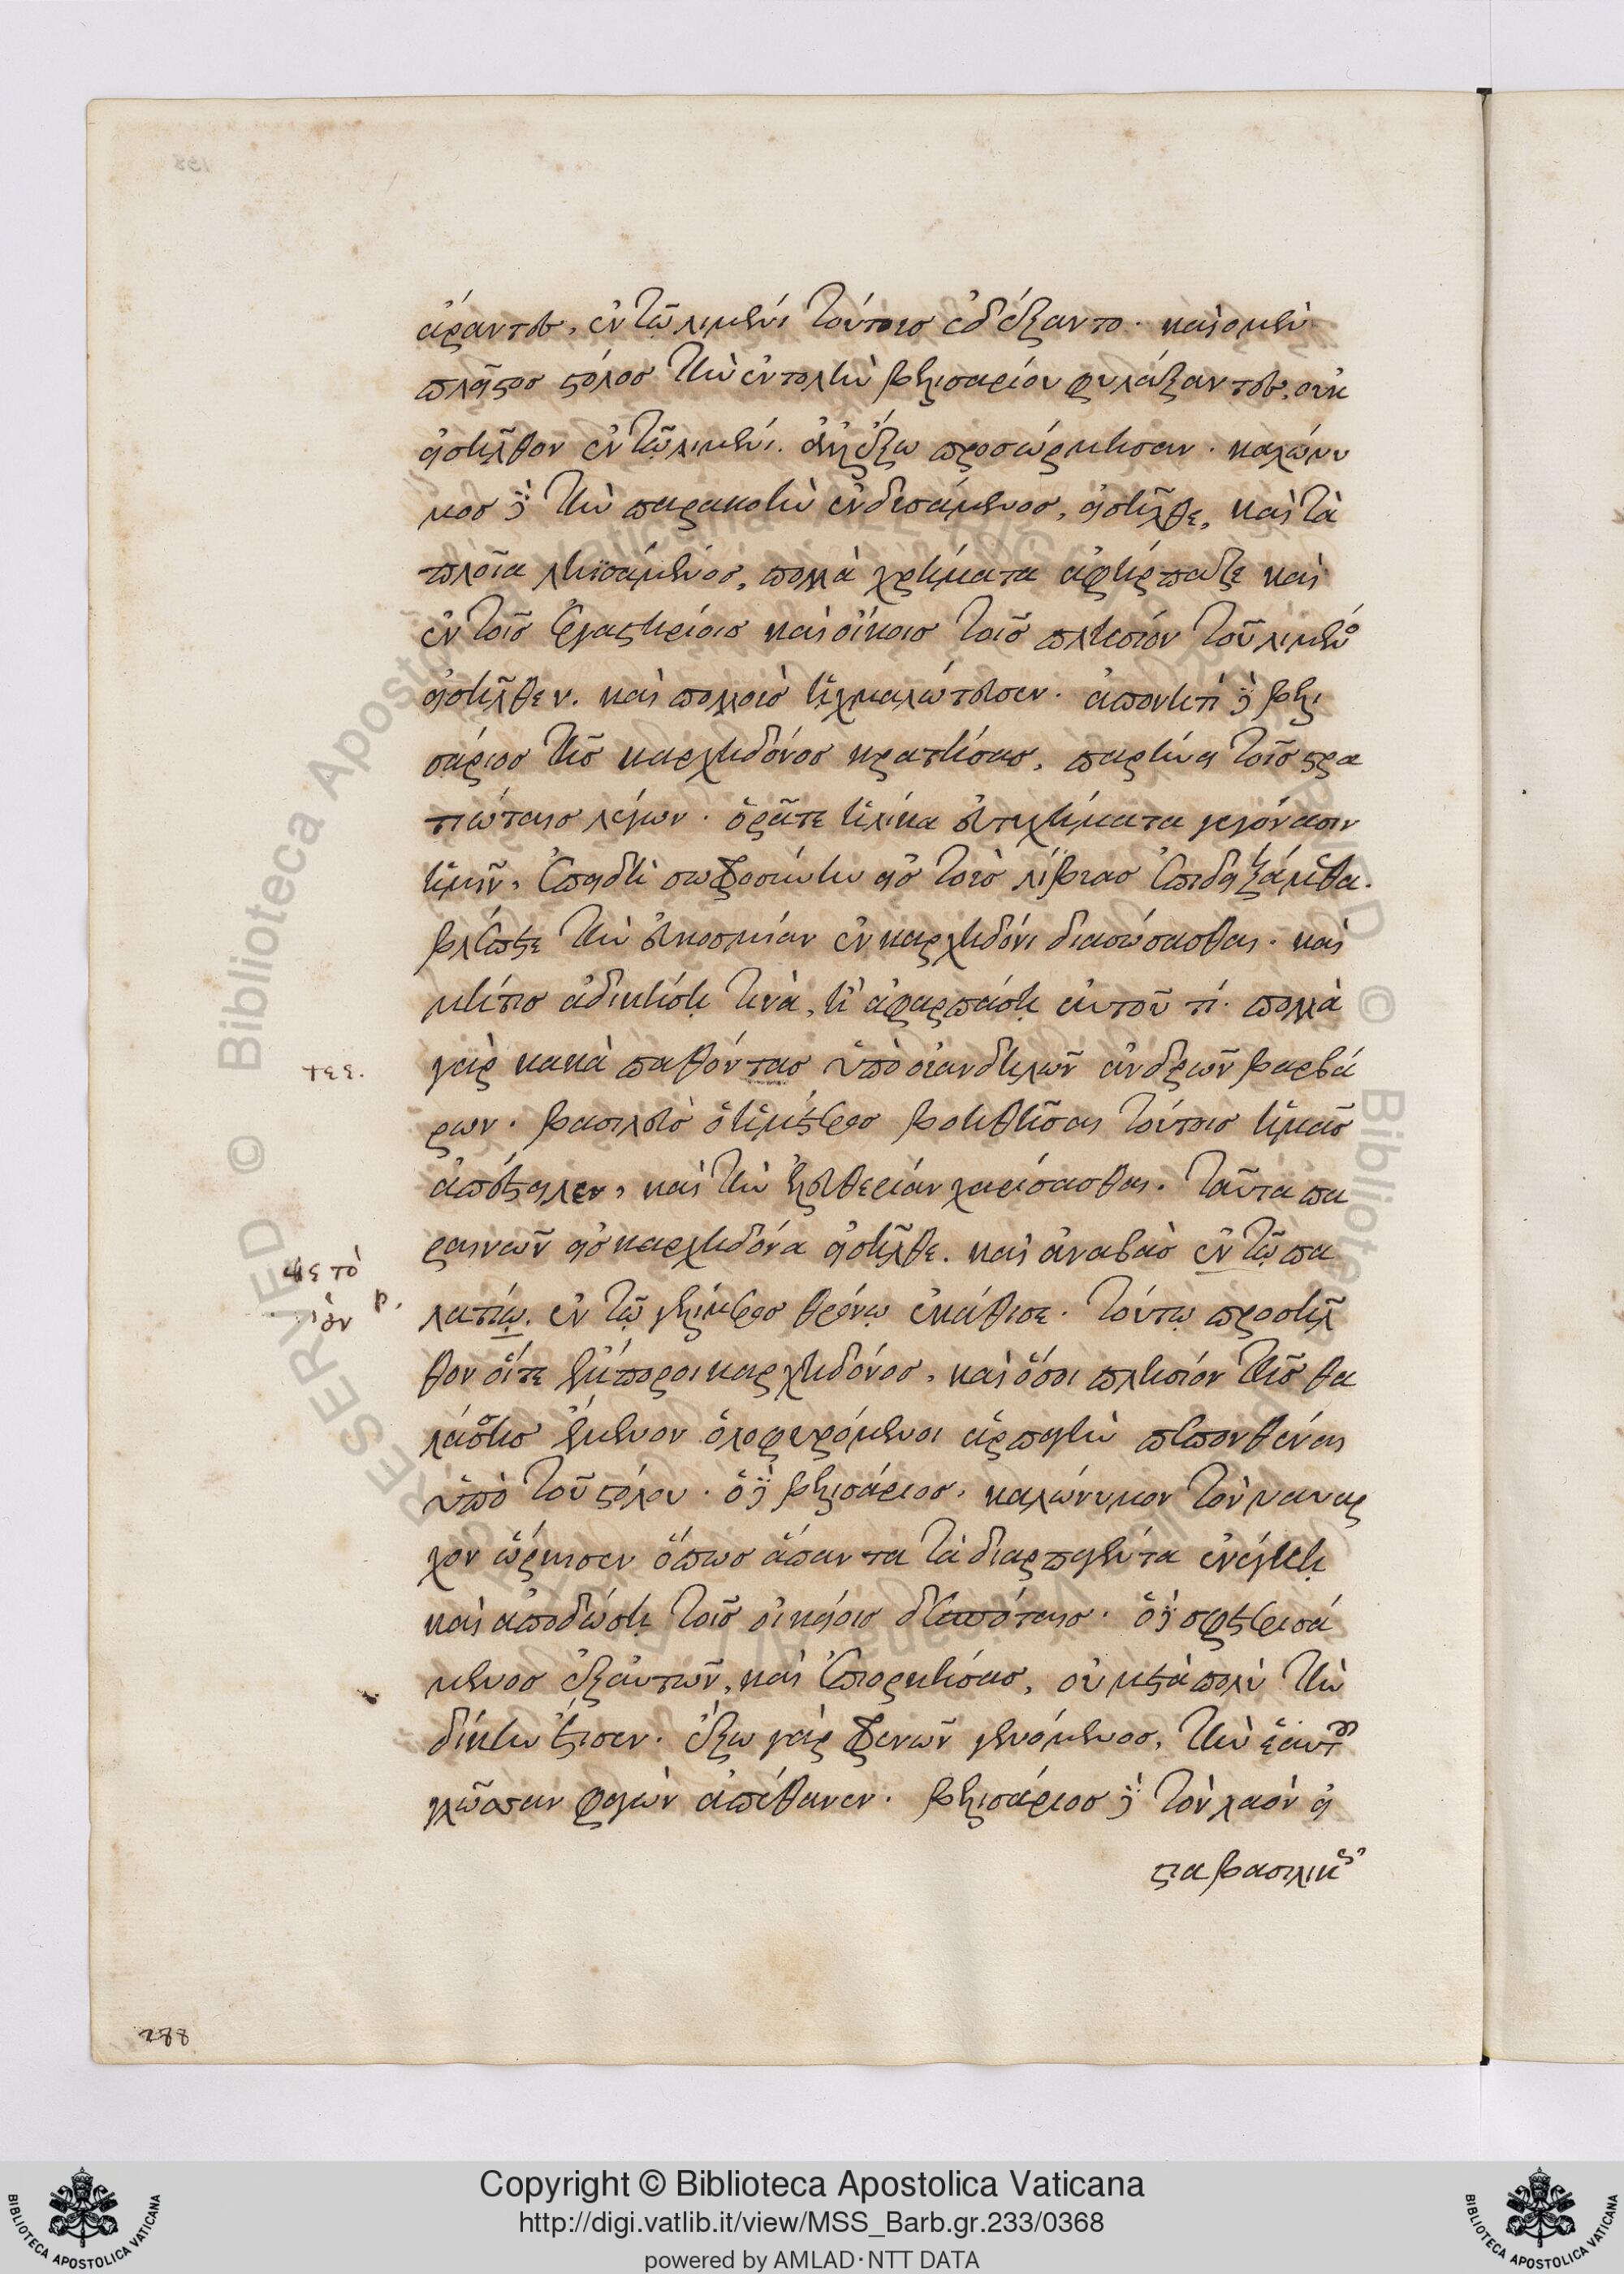 ἄραντες, ἐν τῷ λιμένι τούτοις ἐδέξαντο. καὶ ὁ μὲν
πλεῖστος στόλος τὴν ἐντολὴν βελισαρίου φυλάξαντες, οὐκ
εἰσῆλθον ἐν τῷ λιμένι. ἀλλ' ἔξω προσώρμησαν. καλώνυ
μος δὲ τὴν παρακοὴν ἐνδυσάμενος, εἰσῆλθε, καὶ τὰ
πλοῖα ληϊσάμενος, πολλὰ χρήματα ἀφήρπαξε καὶ
ἐν τοῖς ἐργαστηρίοις καὶ οἴκοις τοῖς πλησίον τοῦ λιμένος
εἰσῆλθεν. καὶ πολλοὺς ᾐχμαλώτευσεν. ἀπονητὶ δὲ βελι
σάριος τῆς καρχηδόνος κρατήσας, παρῄνει τοῖς στρα
τιώταις λέγων. ὁρᾶτε ἡλίκα εὐτυχήματα γεγόνασιν
ἡμῖν, ἐπειδὴ σωφροσύνην εἰς τοὺς λίβυας ἐπεδειξάμεθα.
βλέπετε τὴν εὐκοσμίαν ἐν καρχηδόνι διασώσασθαι. καὶ
μήτις ἀδικήσῃ τινὰ, ἢ ἀφαρπάσῃ αὐτοῦ τί. πολλὰ
γὰρ κακὰ παθόντας ὑπὸ οὐανδήλων ἀνδρῶν βαρβά
τες.
ρων. βασιλεὺς ὁ ἡμέτερος βοηθῆσαι τούτοις ἡμᾶς
ἀπέστειλεν, καὶ τὴν ἐλευθερίαν χαρίσασθαι. ταῦτα πα
ραινῶν εἰς καρχηδόνα εἰσῆλθε. καὶ ἀναβὰς ἐν τῷ πα
λατίῳ. ἐν τῷ γελίμερος θρόνῳ ἐκάθισε. τούτῳ προσῆλ
θον οἵτε ἔμποροι καρχηδόνος, καὶ ὅσοι πλησίον τῆς θα
λάσσης ἔμενον ὀλοφυρόμενοι ἁρπαγὴν πεπονθέναι
ὑπὸ τοῦ στόλου. ὁ δὲ βελισάριος, καλώνυμον τὸν ναυαρ
χον ὥρκισεν ὅπως ἅπαντα τὰ διαρπαγέντα ἐνέγκῃ
καὶ ἀποδώσῃ τοῖς οἰκείοις δεσπόταις. ὁ δὲ σφετερισά
μενος ἐξ αὐτῶν, καὶ ἐπιορκήσας, οὐ μετὰ πολὺ τὴν
δίκην ἔτισεν. ἔξω γὰρ φρενῶν γενόμενος, τὴν ἑαυτοῦ
γλῶσσαν φαγὼν ἀπέθανεν. βελισάριος δὲ τὸν λαὸν εἰ
στια βασιλικῆς
288
Copyright © Biblioteca Apostolica Vaticana
http://digi.vatlib.it/view/MSS_Barb.gr.233/0368
powered by AMLAD·NTT DATA
BIBLIOTECA APOSTOLICA VATICANA
BIBLIOTECA APOSTOLICA VATICANA